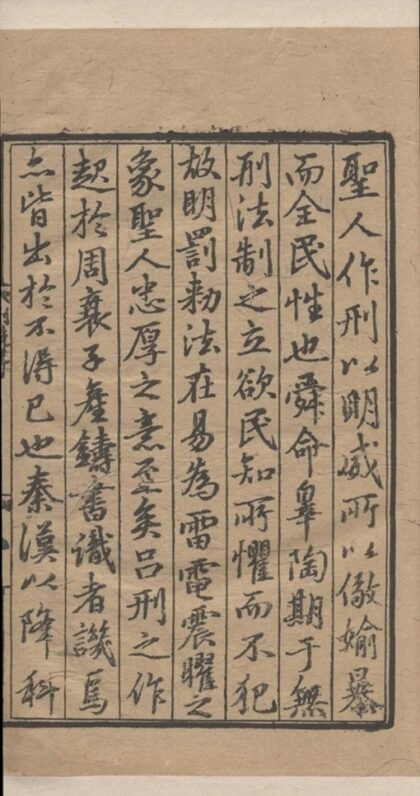 聖人作刑以明威所以儆媮暴
而全民性也舜命皋陶期于無
刑法制之立欲民知所懼而不犯
故明罰勑法在易為雷電震曜之
象聖人忠厚之意至矣呂刑之作
起於周衰子產鑄書識者譏焉
亦皆出於不得已也秦漢以降科